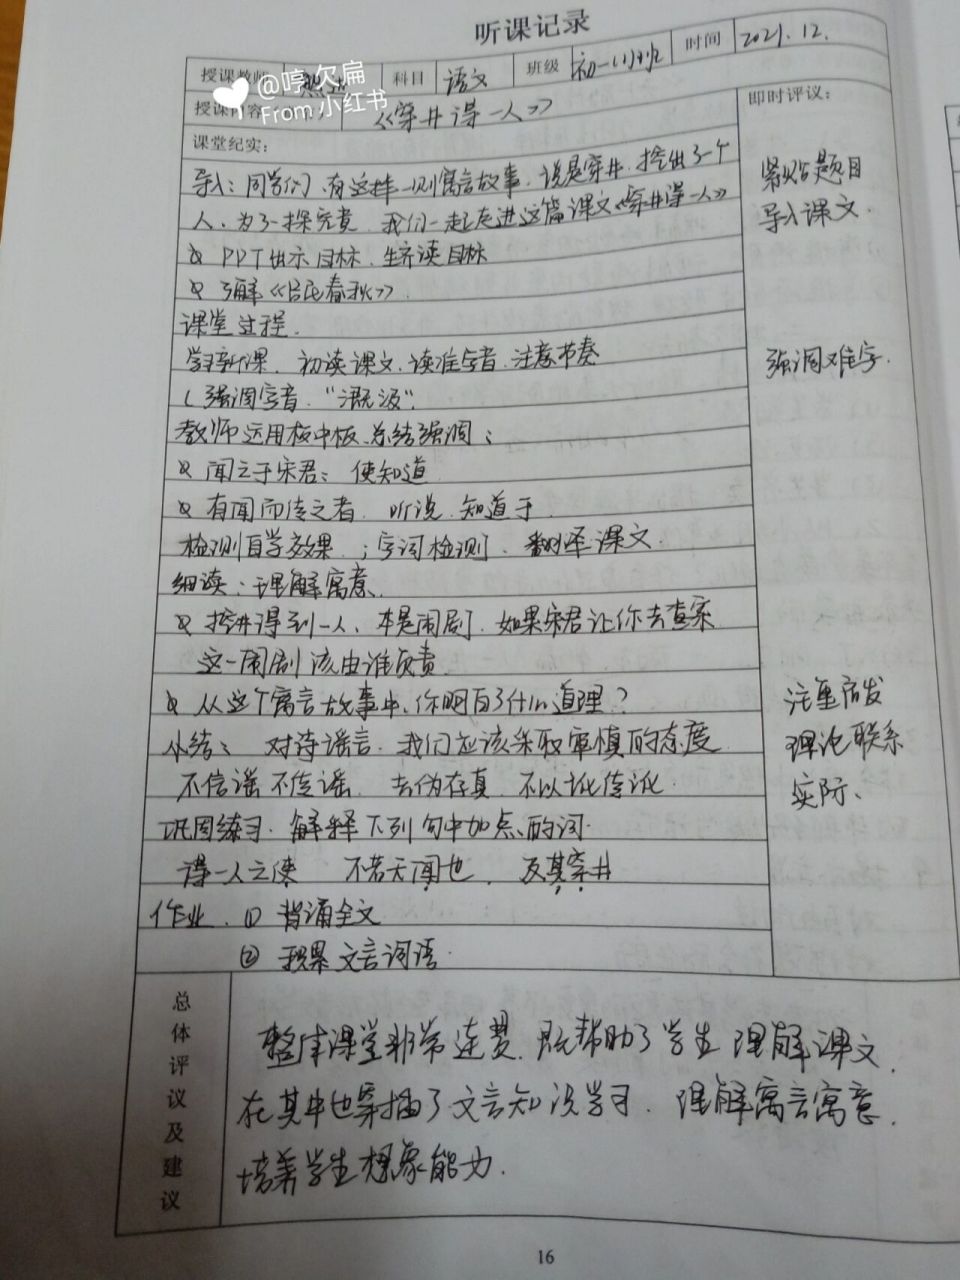 听课记录
授课教师 科目 语文 班级 初一(1)班 时间 2021.12.
@哼欠扁
From 小红书
授课内容 《穿井得一人》 即时评议:
课堂纪实:
导入: 同学们,有这样一则寓言故事,说是穿井,挖出了一个
人、为了一探究竟,我们一起走进这篇课文《穿井得一人》
紧贴题目
导入课文.
PPT出示目标,生齐读目标
了解《吕氏春秋》.
课堂过程.
学习新课. 初读课文,读准字音,注意节奏
强调难字.
强调字音. "溉汲".
教师运用板中板、总结强调:
闻之于宋君: 使知道
有闻而传之者. 听说. 知道于.
检测自学效果: 字词检测、翻译课文
细读: 理解寓意.
挖井得到一人, 本是闹剧. 如果宋君让你去查案
这一闹剧该由谁负责
从这个寓言故事中,你明白了什么道理?
小结: 对待谣言,我们应该采取审慎的态度
不信谣不传谣. 去伪存真. 不以讹传讹.
注重启发
理论联系
实际、
巩固练习. 解释下列句中加点的词.
得一人之使 不若无闻也. 及其穿井
作业. ① 背诵全文
② 积累文言词语.
总体评议及建议
整体课堂非常连贯. 既帮助了学生理解课文.
在其中也穿插了文言知识学习. 理解寓言寓意.
培养学生想象能力.
16